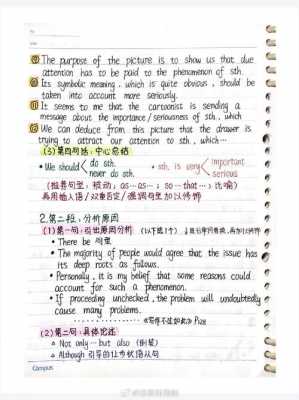 ⑨ The purpose of the picture is to show us that due
attention has to be paid to the phenomenon of sth.
⑩ Its symbolic meaning, which is quite obvious, should be
taken into account more seriously.
⑪ It seems to me that the cartoonist is sending a
message about the importance/seriousness of sth, which
⑫ We can deduce from this picture that the drawer is
trying to attract our attention to sth, which…
(3) 第四句话:中心总结
• We should do sth. never do sth. • sth. is very important serious
(推荐句型,被动,as…as…; so…that…; 比喻)
再用插入语/双重否定/强调句型加以修饰
2.第二段,分析原因
(1) 第一句:引出原因分析
• There be 句型
• The majority of people would agree that the issue has
its deep roots as follows.
• Personally, it is my belief that some reasons could
account for such a phenomenon.
• If proceeding unchecked, the problem will undoubtedly
cause many problems.
(2) 第二句:具体论述
• Not only…but also (倒装)
• Although 引导的让步状语从句
Campus